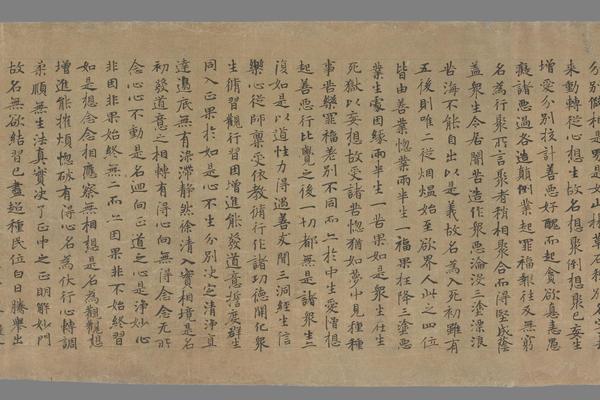 来動轉從心想生故名想聚倒想聚已妄生
增愛分別挍計善惡好醜而起貪欲嗔恚愚
癡諸惡過各造顛倒業起罪福報往反無窮
名為行聚所言聚者稍相聚合而得堅成蔭
蓋衆生令居闇苦造作衆惡淪沒三塗漂浪
苦海不能自出以是義故名為入死初雖有
五後則唯二從烟熅始至欲界人此之四位
皆由善業惚業而半生一福果在降三塗惡
業生處因緣而半生一苦果如是衆生在生
死獄以妄想故受諸苦惚猶如夢中見種種
事苦樂罪福差別不同而上於中生愛憎想
起善惡行比覺之後一切都無是諸衆生亦
復如是以道性力得遇善友聞三洞經生信
樂心從師稟受依教脩行作諸功德開化衆
生脩習觀行習因增進能發道意誓度群生
同入正果於如是心不生分別决定清淨直
達邊底無有滯靜然徐清入實相境是名
初發道意之相轉有得心向無得念念无所
念心心不動是名迴向正道之心是淨妙心
非因非果始終無二而亡因果非不始終習
如是想念念相應察無相想是名為觀觀想
增進能摧煩惚破有得心名為伏行心轉調
柔順無生法真實决了正中之正明解妙門
故名無欲結習已盡超種民位白日騰舉出